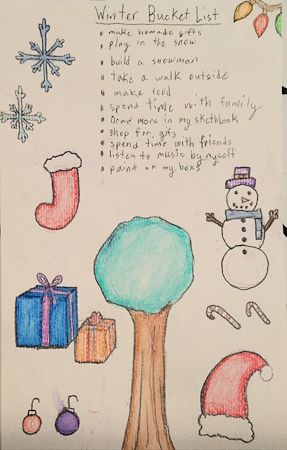 Winter Bucket List
make homade gifts
play in the snow
build a snowman
take a walk outside
make food
spend time with family
Draw more in my skethbook
shop for gifs
spend time with friends
listen to music by myself
paint on my boxs